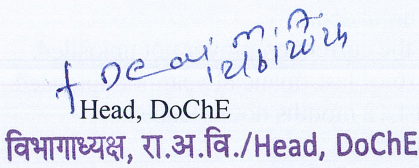 Head, DoChE
विभागाध्यक्ष, रा.अ.वि./Head, DoChE